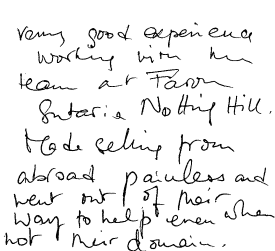 very good experience
working with the
team at Faron
Sutaria Notting Hill.
Made selling from
abroad painless and
went out of their
way to help even when
not their domain.